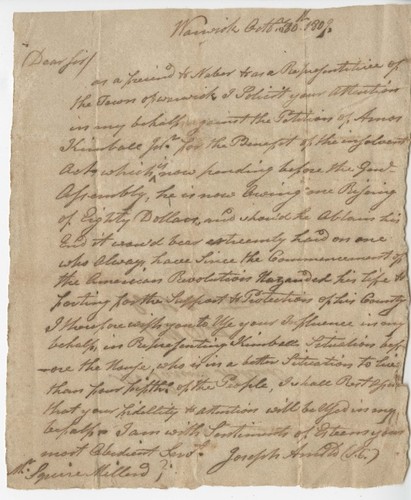 Warwick Octbr 30th 180
Dear Sir/
as a friend & Naber & as a Representitive of
the Town of warwick I Solicit your Attention
in my behalf against the Petition of Amos
Kimball Jr. for the Benefit of the insolvent
Acts which is now pending before the Genl
Assembly, he is now Owing me Rising
of Eighty Dollars, and should he Obtain his
End it would bear extreemly hard on one
who Always have Since the Commencement of
the American Revolution Hazarded his life &
forting for the Support & Protection of his Country
I therefore wish you to Use your Influence in my
behalf, in Representing Kimball Setuation bef-
ore the House, who is in a better Situation to live
than four fifths of the People, I shall Rest
that your fidelity & attention will be Used in my
behalf - I am with Sentiments of Esteem your
most Obedient Servt.
Joseph Arnold
Mr. Squire Millerd